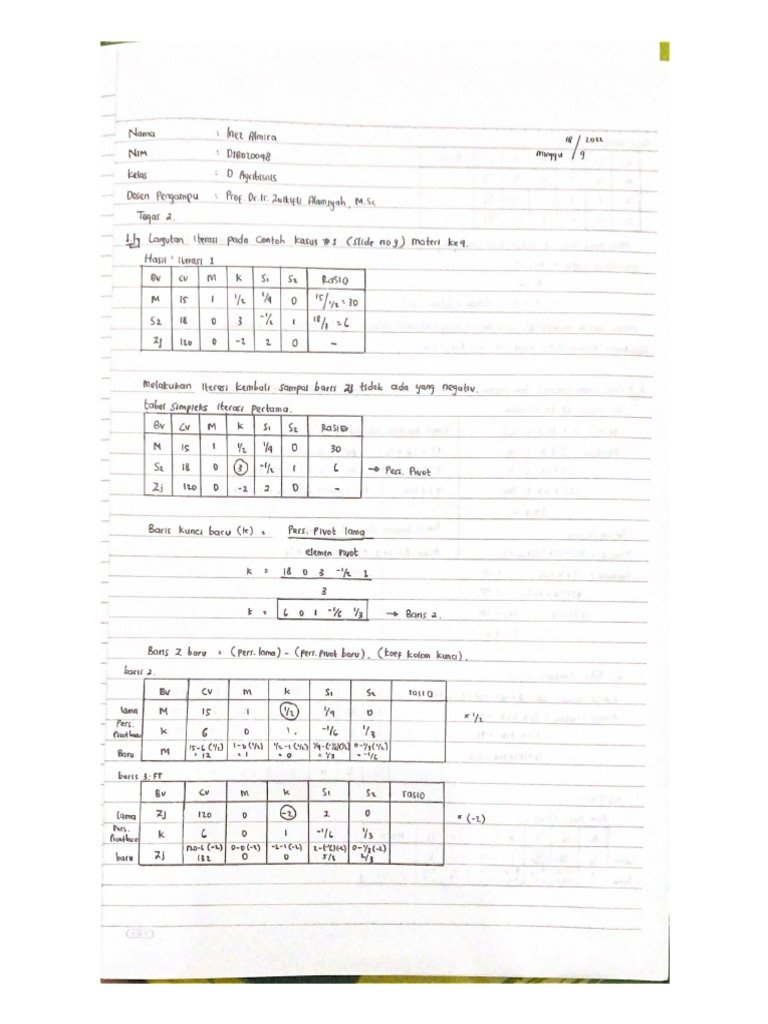 Nama : Inez Almira
18/2022
NIM : D1B020098
minggu / 9
Kelas : D Agribisnis
Dosen Pengampu : Prof. Dr. Ir. Zulkifli Alamsyah, M.Sc
Tugas 2.
1. Lanjutan iterasi pada Contoh kasus #1 (Slide no 9) materi ke 9.
Hasil iterasi 1
BV CV M K S1 S2 RASIO
M 15 1 1/2 1/4 0 15/1/2 = 30
S2 18 0 3 -1/2 1 18/3 = 6
Zj 120 0 -2 2 0 -
Melakukan iterasi kembali sampai baris Zj tidak ada yang negativ.
tabel Simpleks iterasi pertama.
BV CV M K S1 S2 RASIO
M 15 1 1/2 1/4 0 30
S2 18 0 3 -1/2 1 6 → Pers. Pivot
Zj 120 0 -2 2 0 -
Baris kunci baru (k) = Pers. Pivot lama
elemen Pivot
k = 18 0 3 -1/2 1
3
k = 6 0 1 -1/6 1/3 → Baris 2.
Baris Z baru = (pers. lama) - (pers. pivot baru). (koef kolom kunci).
baris 2.
BV CV M K S1 S2 rasio
lama M 15 1 1/2 1/4 0 × 1/2
Pers. Pivot baru K 6 0 1. -1/6 1/3
Baru M 15-6 (1/2) = 12 1-0 (1/2) = 1 1/2-1 (1/2) = 0 1/4-(-1/6)(1/2) = 1/3 0-1/3 (1/2) = -1/6
baris 3 : FT
BV CV M K S1 S2 rasio
lama Zj 120 0 -2 2 0 × (-2)
Pers. Pivot baru K 6 0 1 -1/6 1/3
baru Zj 120-6 (-2) 132 0-0 (-2) 0 -2-1 (-2) 0 2-(-1/6)(-2) 5/3 0-1/3 (-2) 2/3